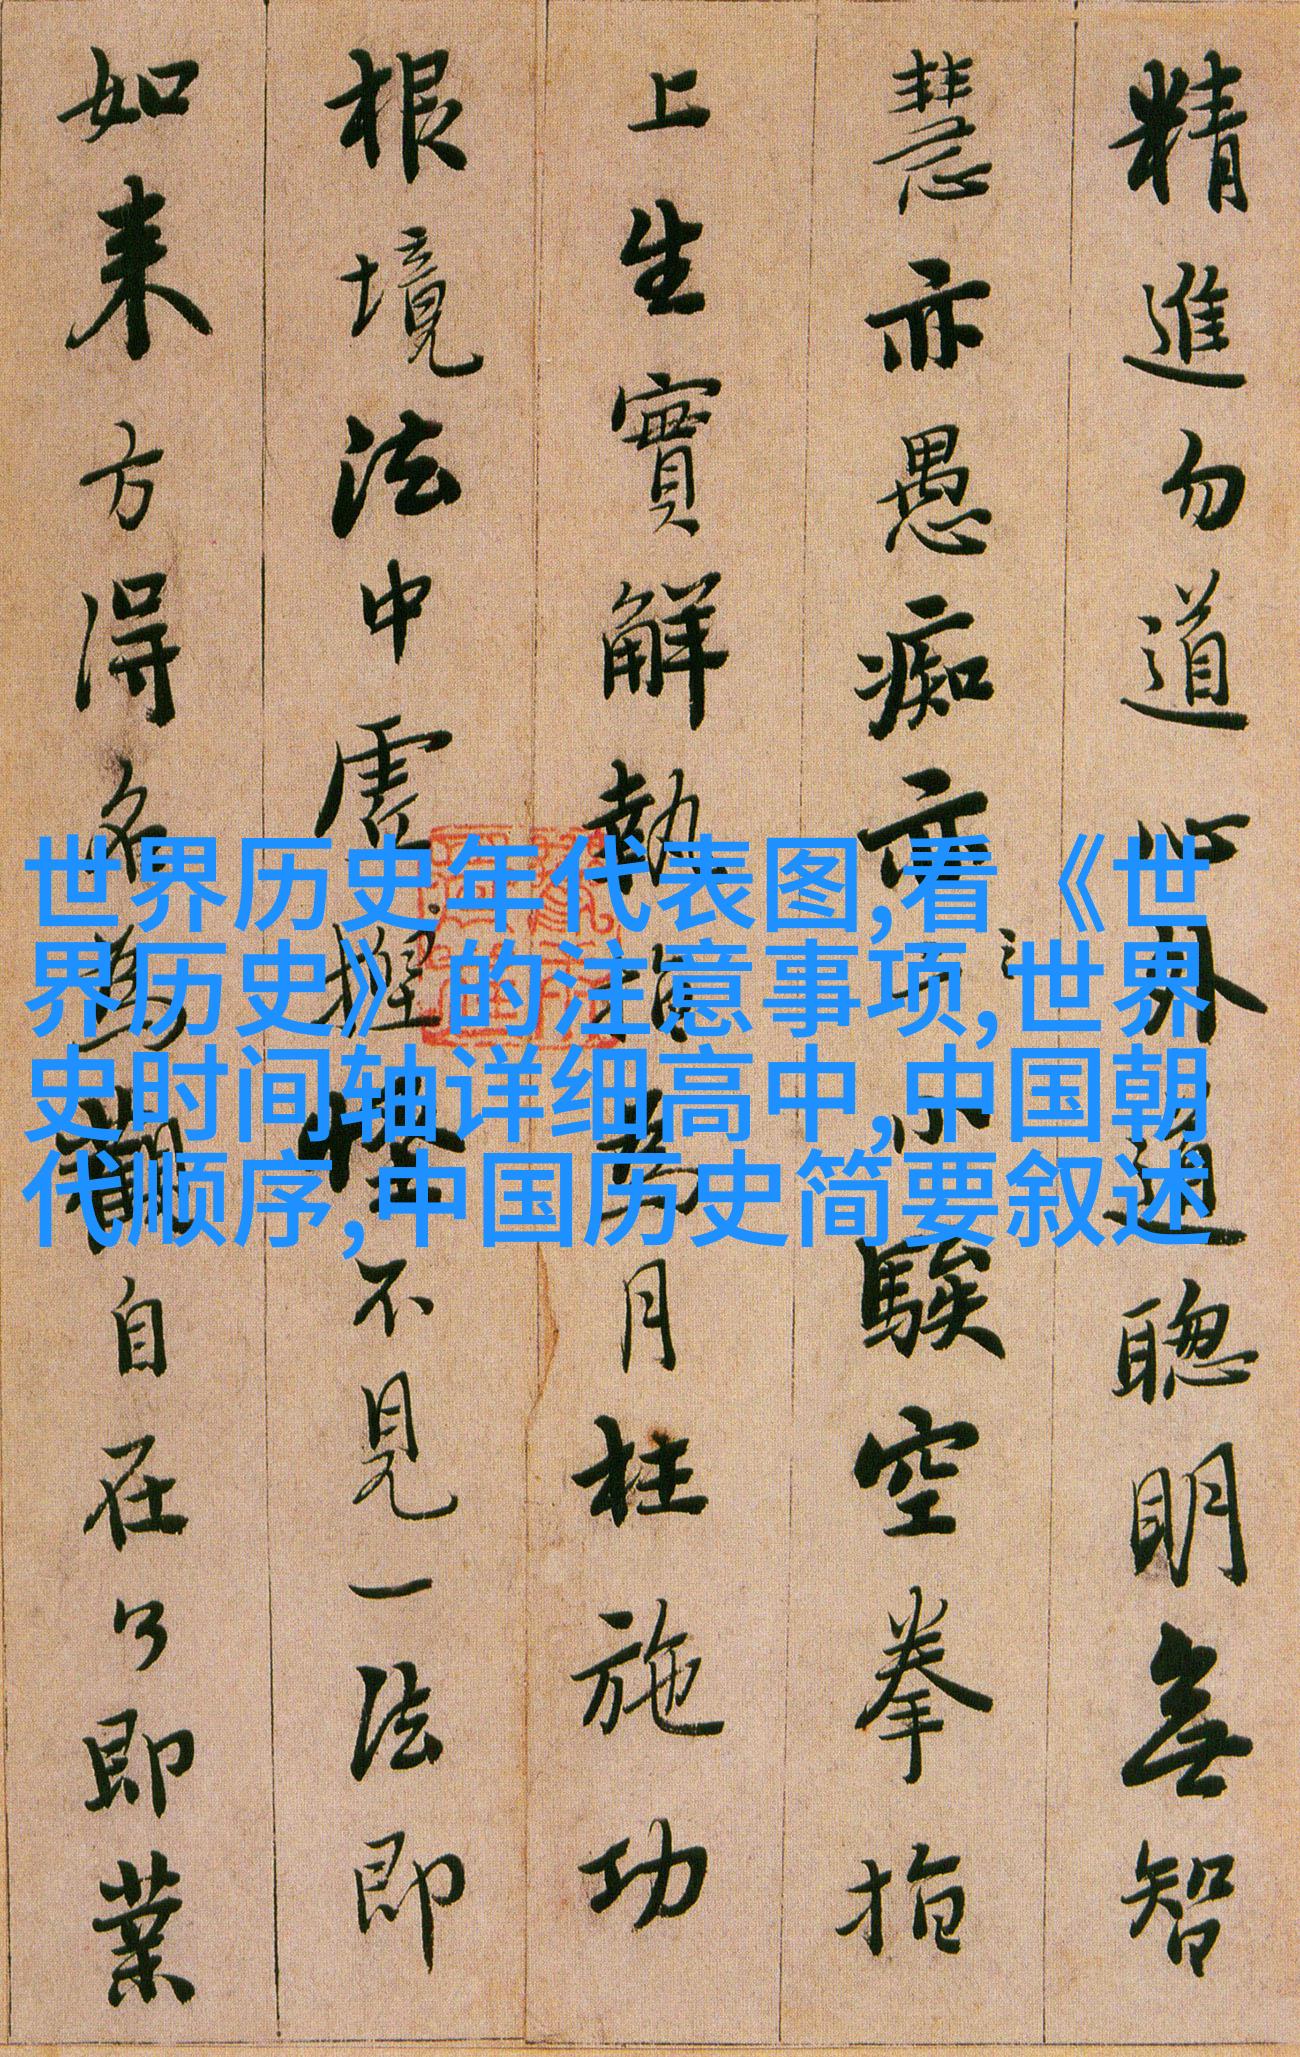 精進勿道心外道聰明無智
慧亦愚痴亦小騃空拳指
上生實解執指為月枉施功
根境法中虛捏怪不見一法即
如来方得名為觀自在了即業
世界历史年代表图,看《世
界历史》的注意事项,世界
史时间轴详细高中,中国朝
代顺序,中国历史简要叙述